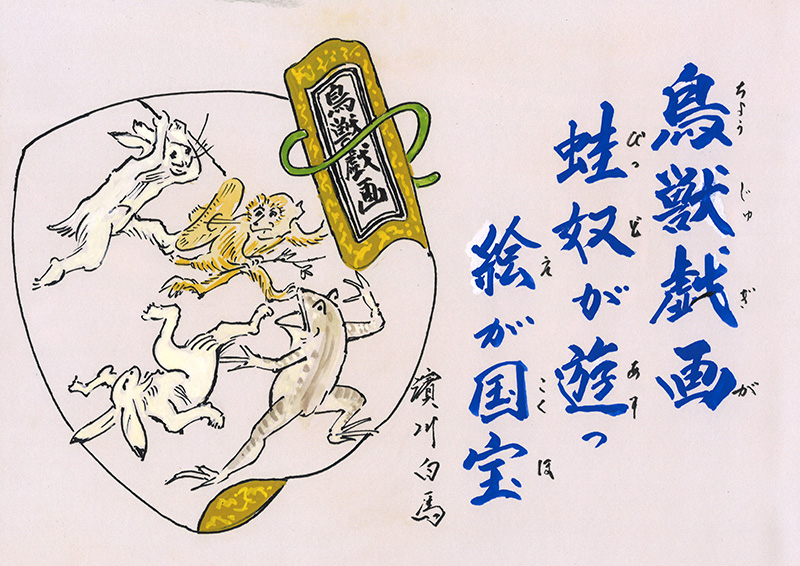 鳥獣戯画
ちょう じゅ ぎ が
蛙奴が遊っ
びっ ど あす
絵が国宝
え こく ほ
濱川白馬
鳥獣戯画